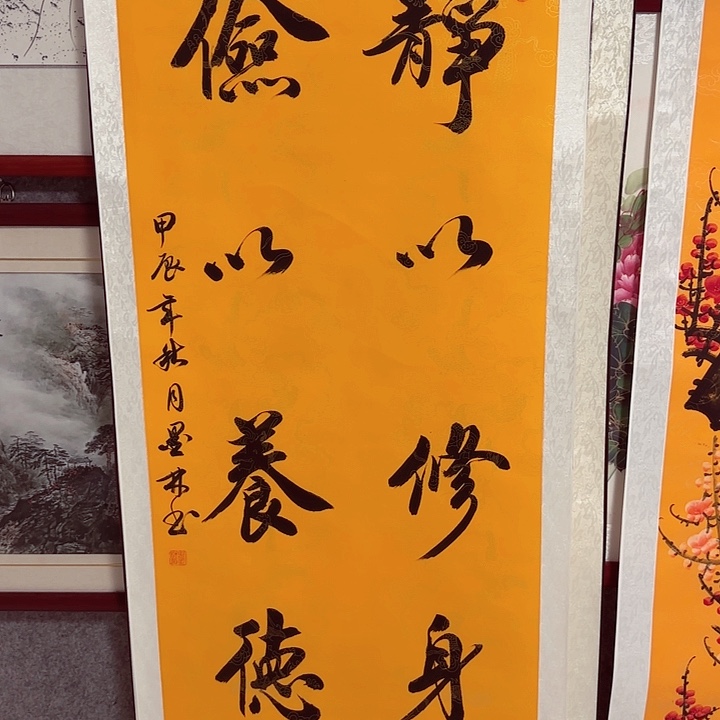 靜以修身
儉以養德
甲辰年秋月墨林书